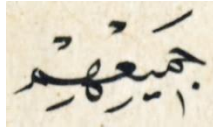 جَمِيعِهِمْ